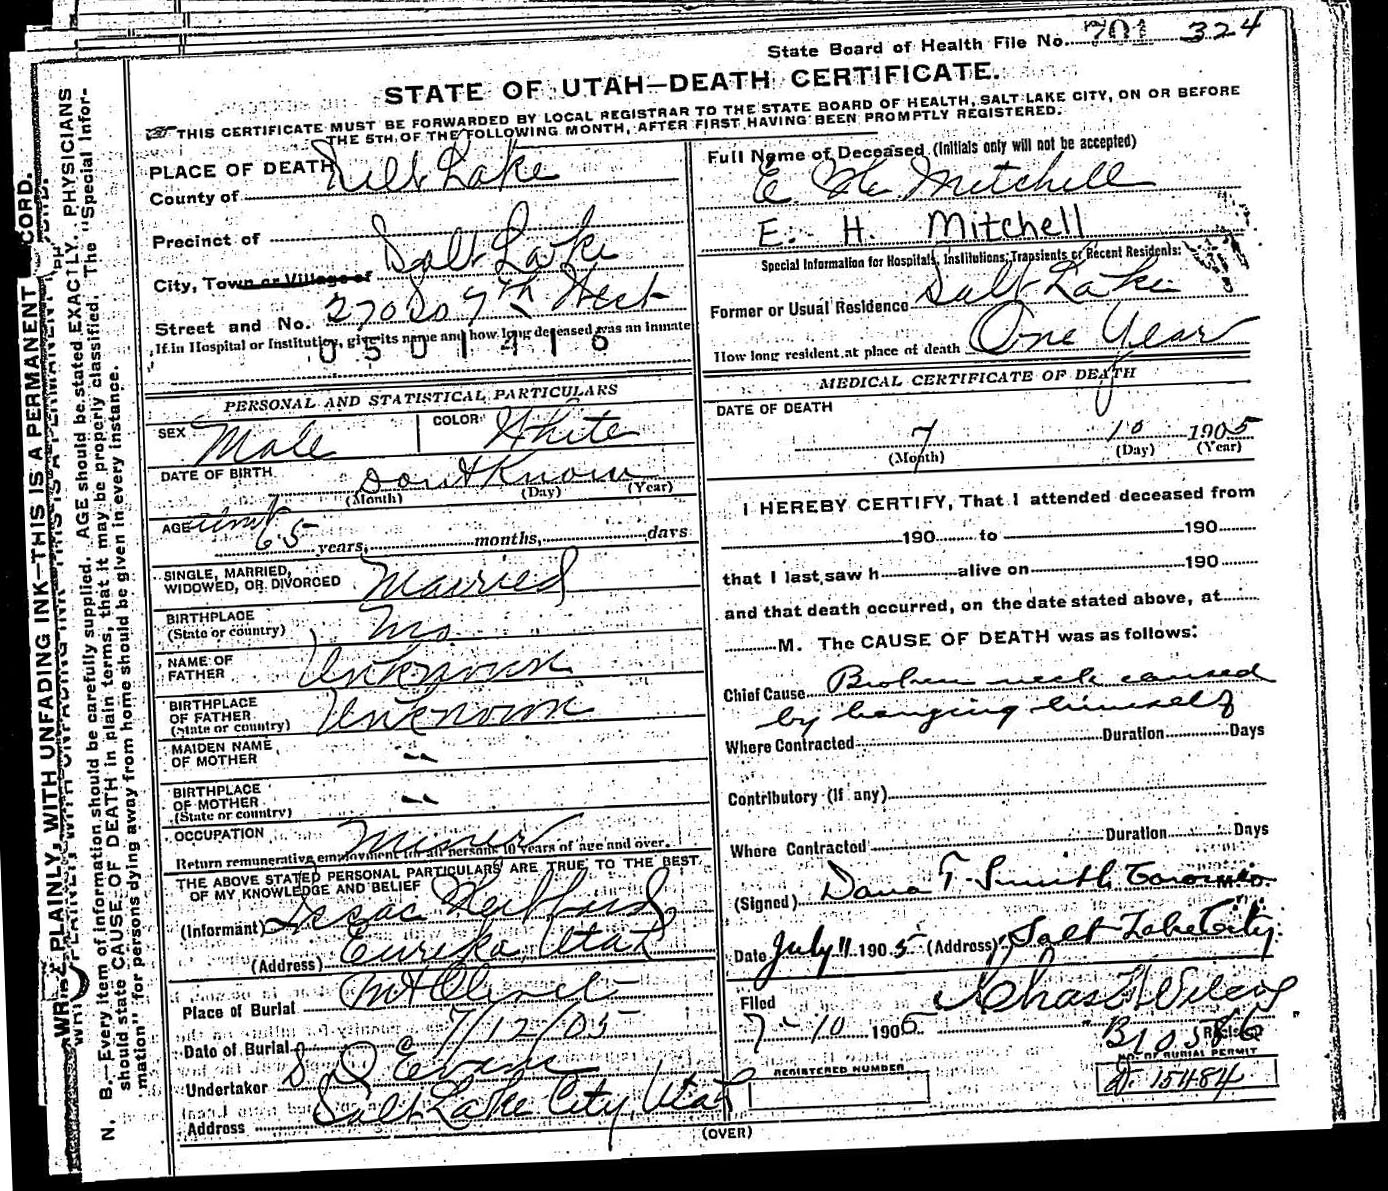 State Board of Health File No. 701 324
STATE OF UTAH—DEATH CERTIFICATE.
THIS CERTIFICATE MUST BE FORWARDED BY LOCAL REGISTRAR TO THE STATE BOARD OF HEALTH, SALT LAKE CITY, ON OR BEFORE
THE 5TH OF THE FOLLOWING MONTH, AFTER FIRST HAVING BEEN PROMPTLY REGISTERED.
PLACE OF DEATH
County of Salt Lake
Precinct of
City, Town or Village of Salt Lake
Street and No. 270 So 7th West
If in Hospital or Institution, give its name and how long deceased was an inmate
0501416
PERSONAL AND STATISTICAL PARTICULARS
SEX Male
COLOR White
DATE OF BIRTH Dont Know
(Month) (Day) (Year)
AGE 65 years, months, days
SINGLE, MARRIED,
WIDOWED, OR DIVORCED Married
BIRTHPLACE
(State or country) Mo
NAME OF
FATHER Unknown
BIRTHPLACE
OF FATHER
(State or country) Unknown
MAIDEN NAME
OF MOTHER "
BIRTHPLACE
OF MOTHER
(State or country) "
OCCUPATION Miner
Return remunerative employment for all persons 10 years of age and over.
THE ABOVE STATED PERSONAL PARTICULARS ARE TRUE TO THE BEST
OF MY KNOWLEDGE AND BELIEF
(Informant) Isaac
(Address) Eureka, Utah
Place of Burial Mt Olivet
Date of Burial 7/12/05
Undertaker S D Evans
Address Salt Lake City, Utah
Full Name of Deceased (Initials only will not be accepted)
E H Mitchell
E. H. Mitchell
Special Information for Hospitals, Institutions, Transients or Recent Residents:
Former or Usual Residence Salt Lake
How long resident at place of death One Year
MEDICAL CERTIFICATE OF DEATH
DATE OF DEATH
7 10 1905
(Month) (Day) (Year)
I HEREBY CERTIFY, That I attended deceased from
190 to 190
that I last saw h alive on 190
and that death occurred, on the date stated above, at
M. The CAUSE OF DEATH was as follows:
Chief Cause Broken neck caused
by hanging himself
Where Contracted Duration Days
Contributory (If any)
Where Contracted Duration Days
(Signed) Dana T. Smith Coroner M.D.
Date July 11 1905 (Address) Salt Lake City
Filed
7-10 1905
REGISTERED NUMBER
NO. OF BURIAL PERMIT
15484
(OVER)
N. B.—Every item of information should be carefully supplied. AGE should be stated EXACTLY. PHYSICIANS
should state CAUSE OF DEATH in plain terms, that it may be properly classified. The "Special Infor-
mation" for persons dying away from home should be given in every instance.
WRITE PLAINLY, WITH UNFADING INK—THIS IS A PERMANENT RECORD.